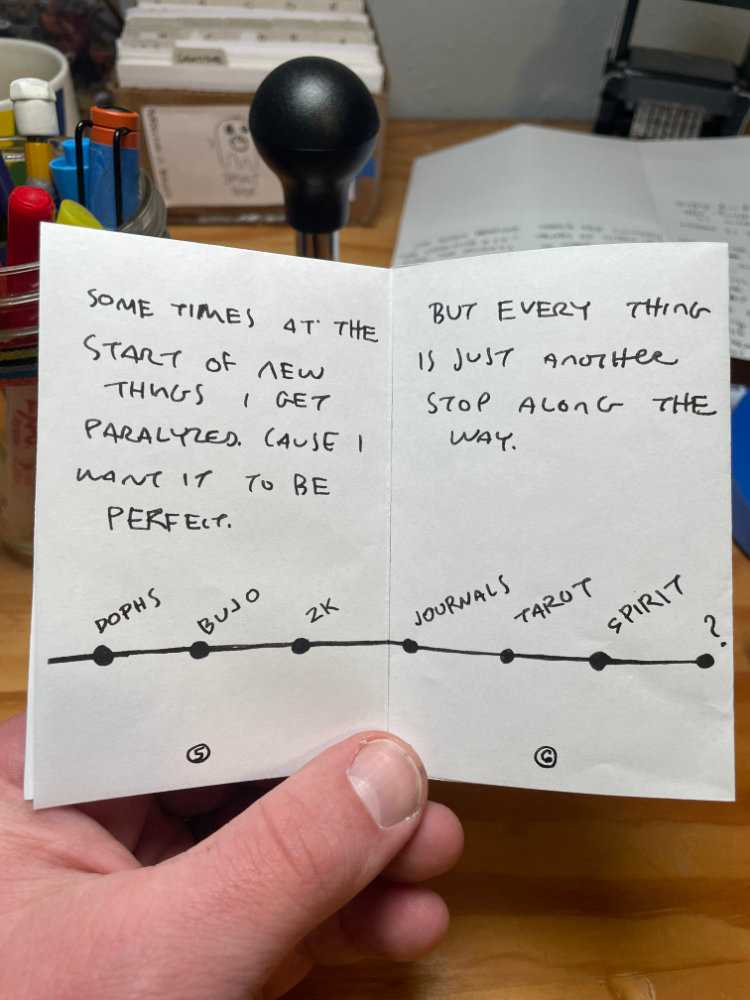 SOME TIMES AT THE
START OF NEW
THINGS I GET
PARALYZED. CAUSE I
WANT IT TO BE
PERFECT.
DOPHS
BUJO
2K
5
BUT EVERY THING
IS JUST ANOTHER
STOP ALONG THE
WAY.
JOURNALS
TAROT
SPIRIT
?
6